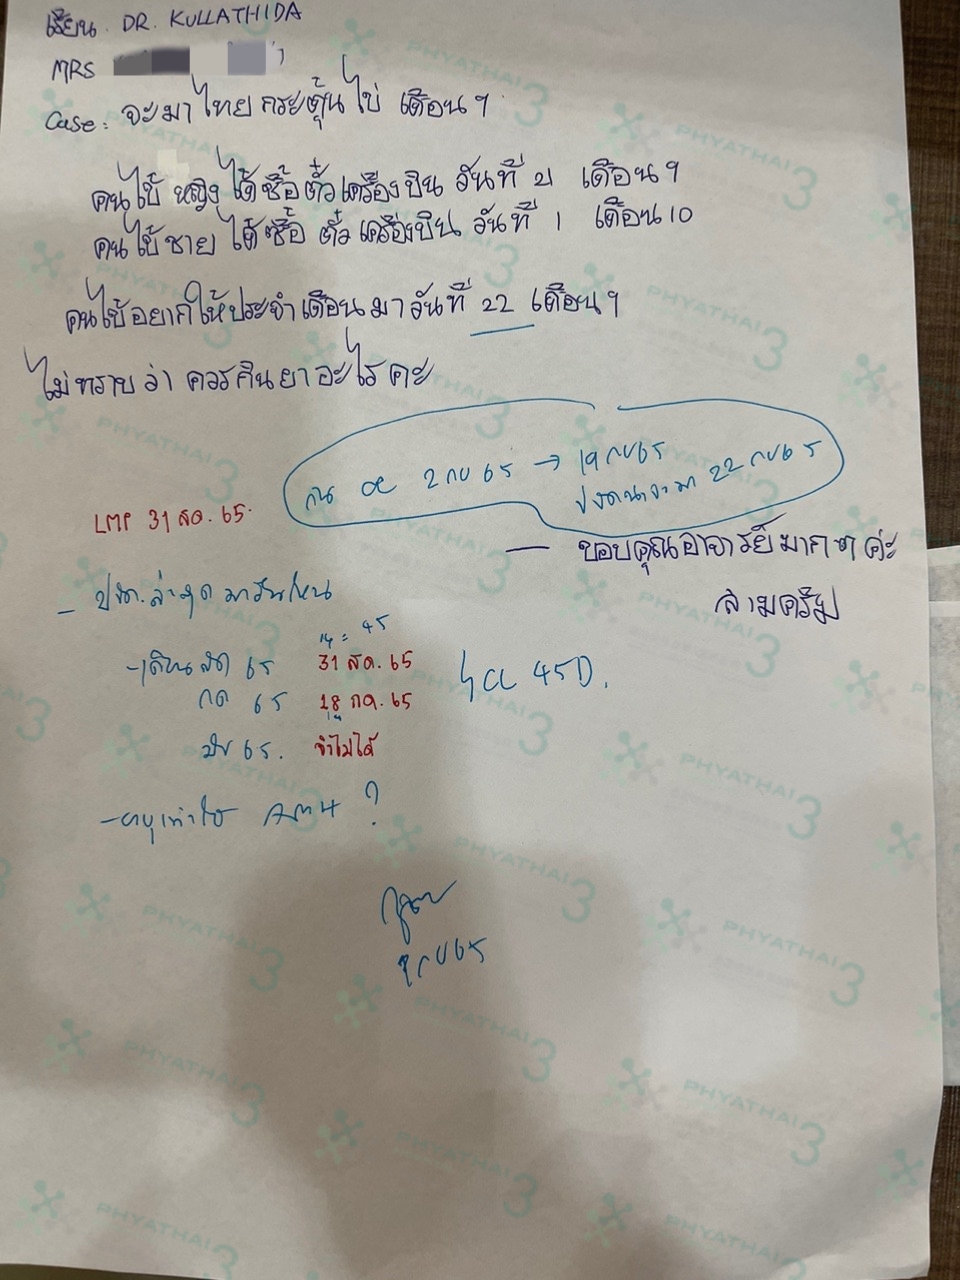 เรียน DR. KULLATHIDA
MRS
Case : จะมาไทย กระตุ้นไข่ เดือน 9
คนไข้ หญิง ได้ซื้อตั๋วเครื่องบิน วันที่ 21 เดือน 9
คนไข้ ชาย ได้ซื้อ ตั๋วเครื่องบิน วันที่ 1 เดือน 10
คนไข้อยากให้ประจำเดือนมาวันที่ 22 เดือน 9
ไม่ทราบว่า ควรกินยาอะไรคะ
กิน OC 2 กย 65 → 19 กย 65
ปจด น่าจะมา 22 กย 65
LMP 31 สค. 65.
ขอบคุณอาจารย์มากๆค่ะ
ล่ามครีม
- ปจด. ล่าสุด มาวันไหน
14 = 45
- เดือน สค 65 31 สค. 65
กค 65 18 กค. 65
มิย 65. จำไม่ได้
CL 45D.
- อายุเท่าไร AMH ?
กย 65
PHYATHAI 3